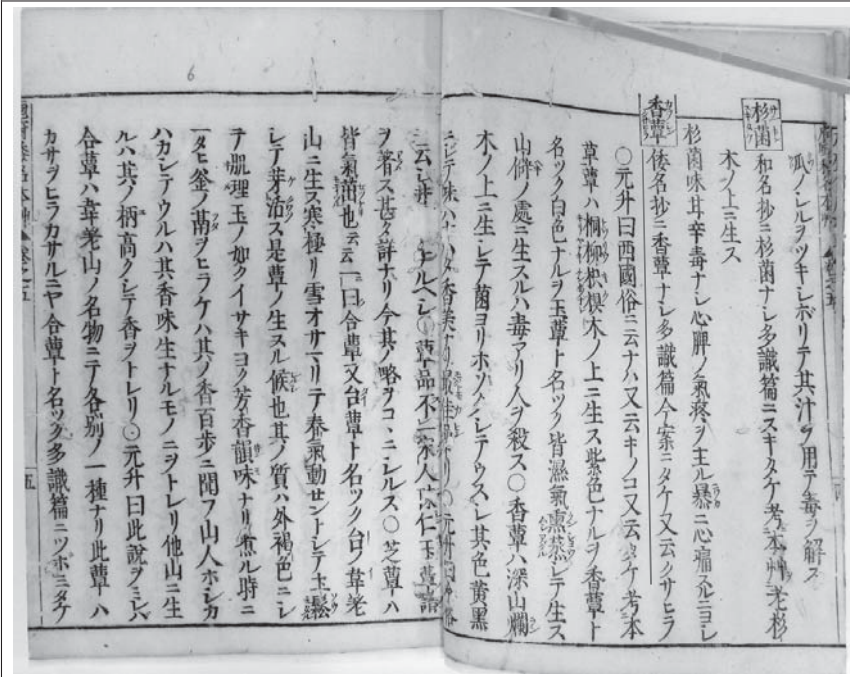 瓜ノシルヲツキシボリテ其汁ヲ用テ毒ヲ解ス
杉菌 和名抄ニ杉菌ナシ多識篇ニスキタケ考本艸老杉
木ノ上ニ生ス
杉菌味甘辛毒ナシ心脾ノ氣疼ヲ主ル暴ニ心痛スルニヨシ
香蕈 倭名抄ニ香蕈ナシ多識篇今案ニタケ又云クサヒラ
〇元升曰西國俗ニ云ナハ又云キノコ又云タケ考本
草蕈ハ桐柳枳椇木ノ上ニ生ス紫色ナルヲ香蕈ト
名ツク白色ナルヲ玉蕈ト名ツク皆濕氣熏蒸シテ生ス
山僻ノ處ニ生スルハ毒アリ人ヲ殺ス〇香蕈ハ深山爛
木ノ上ニ生シテ菌ヨリホソクシテウスシ其色黄黒
ニシテ味ハナハタ香美ナリ最佳品ナリ〇元升曰
ニ云シ井 ナルヘシ〇蕈品不一宋人陳仁玉蕈譜
ヲ著ス甚タ詳ナリ今其ノ略ヲコヽニシルス〇芝蕈ハ
皆氣茁也云云一曰合蕈又台蕈ト名ツク台ノ韋羌
山ニ生ス寒極リ雪オサマリテ春氣動セントシテ土鬆
シテ芽活ス是蕈ノ生スル候也其ノ質ハ外褐色ニシ
テ肌理玉ノ如クイサキヨク芳香韻味ナリ煮ル時ニ
一タヒ釜ノ冪ヲヒラケハ其ノ香百歩ニ聞フ山人ホシカ
ハカシテウルハ其香味生ナルモノニヲトレリ他山ニ生
ルハ其ノ柄高クシテ香ヲトレリ〇元升曰此説ヲミレハ
合蕈ハ韋羌山ノ名物ニテ各別ノ一種ナリ此蕈ハ
カサヲヒラカサルニヤ合蕈ト名ツク多識篇ニツボミタケ
五
6